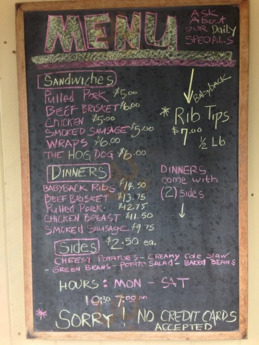 MENU
ASK
About
our Daily
SPECIALS
Sandwiches
Pulled Pork $5.00
BEEF BRISKET $6.00
CHICKEN $5.00
SMOKED SAUSAGE $5.00
WRAPS $6.00
THE HOG DOG $6.00
Babyback
* Rib Tips
$7.00
1/2 Lb
DINNERS
BABYBACK RIBS $14.50
BEEF BRISKET $13.75
Pulled Pork $12.75
CHICKEN BREAST $11.50
SMOKED SAUSAGE $9.75
DINNERS
come with
(2) Sides
Sides $2.50 ea.
CHEESY POTATOES - CREAMY COLE SLAW
GREEN BEANS - POTATO SALAD - BAKED BEANS
HOURS: MON - SAT
10:30 7:00 pm
* SORRY! NO CREDIT CARDS
ACCEPTED